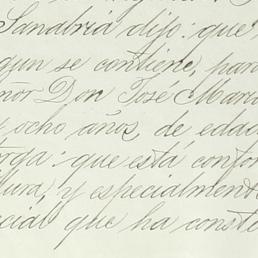 Sanabria dijo: que
gun se contiene, para
ñor Don José María
y ocho años, de edad
que está confor
y especialmente
cial que ha consti